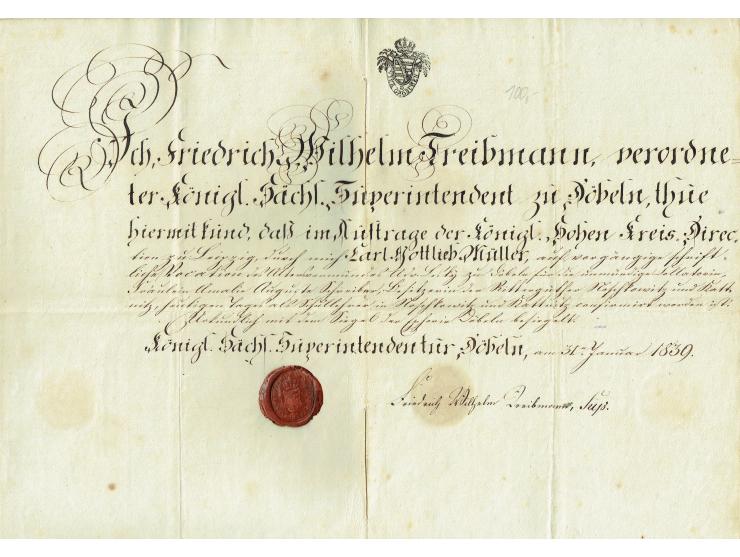 100,-
Ich, Friedrich Wilhelm Treibmann, verordne=
ter Königl. Sächs. Superintendent zu Döbeln, thue
hiermit kund, daß im Auftrage der Königl. Hohen Kreis-Direc-
tion zu Leipzig, durch mich Carl Gottlieb Müller, auf vorgängige schrift-
liche Vocation des zu Döbeln für die
Fräulein Amalie Auguste Schreiber, Besitzerin der Rittergüther und
heutigen Tages als Schullehrer in und confirmirt worden ist.
Urkundlich mit dem Siegel der Ephorie Döbeln besiegelt.
Königl. Sächs. Superintendentur Döbeln, am 31ten Januar 1839.
Friedrich Wilhelm Treibmann, Sup.